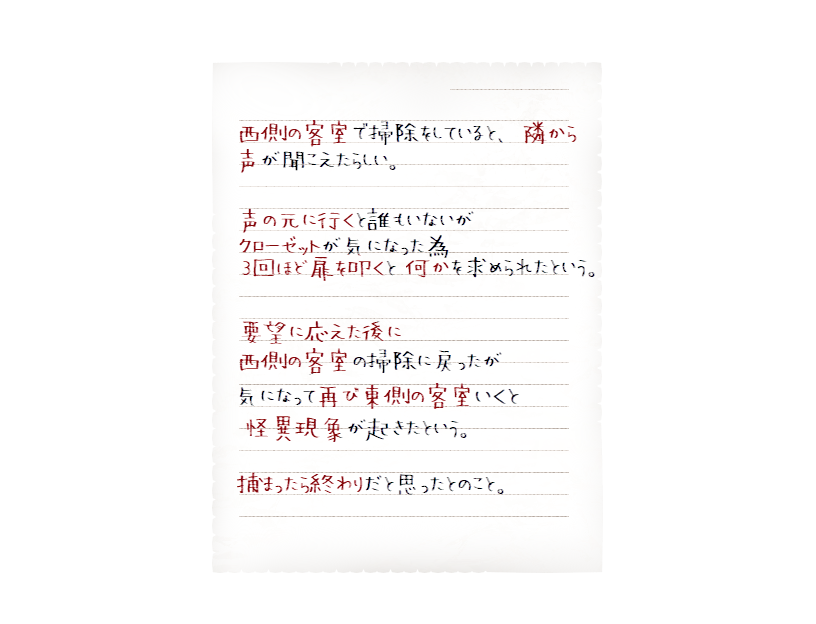 西側の客室で掃除をしていると、隣から
声が聞こえたらしい。
声の元に行くと誰もいないが
クローゼットが気になった為
3回ほど扉を叩くと何かを求められたという。
要望に応えた後に
西側の客室の掃除に戻ったが
気になって再び東側の客室いくと
怪異現象が起きたという。
捕まったら終わりだと思ったとのこと。